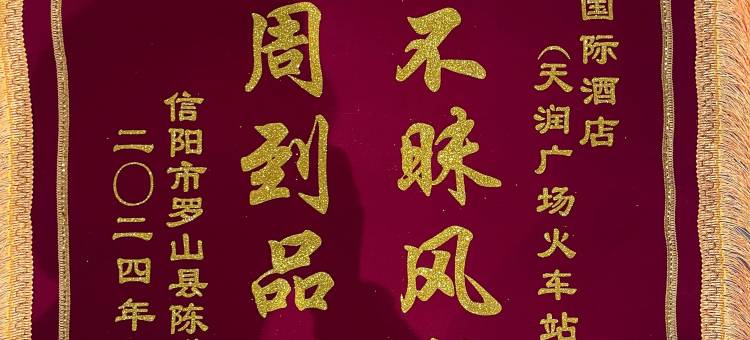 国际酒店
（天润广场火车站
不昧风
周到品
信阳市罗山县陈
二〇二四年